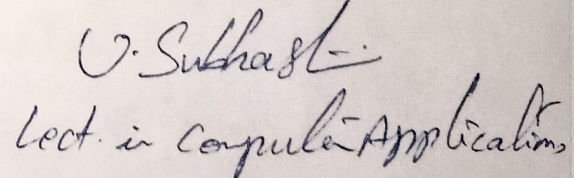 U. Subhash
Lect. in Computer Applications